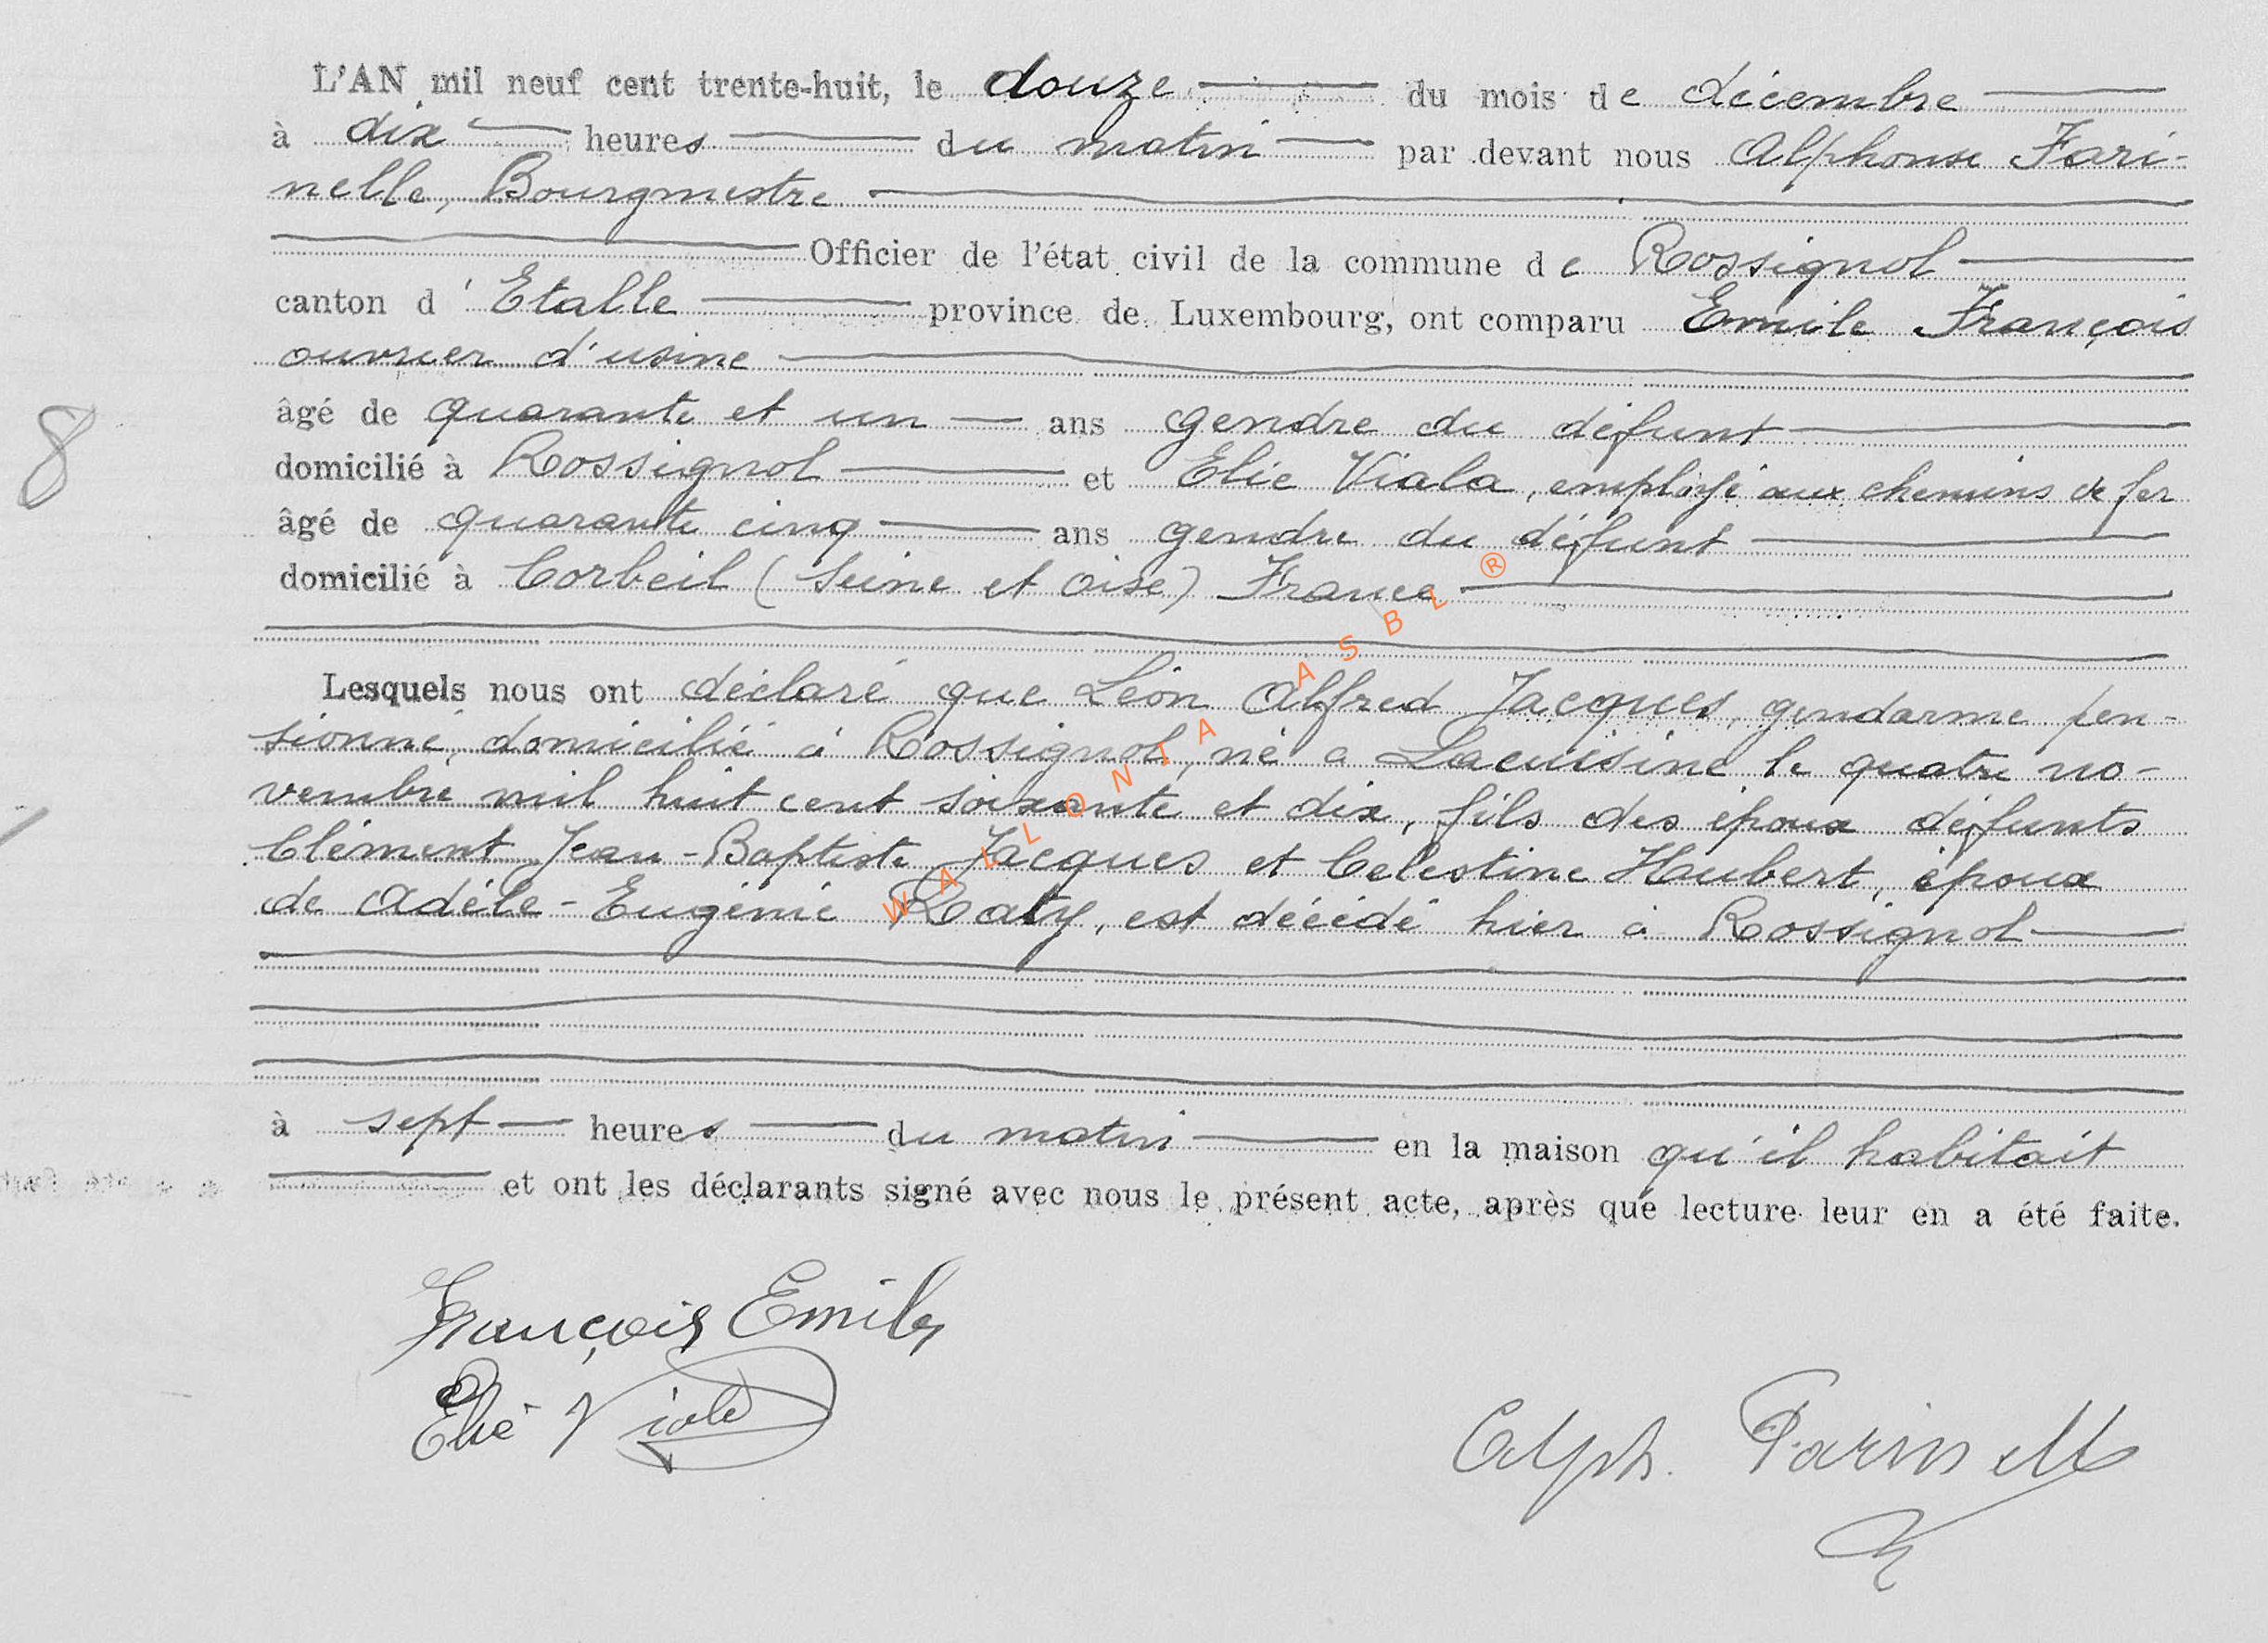 L'AN mil neuf cent trente-huit, le douze du mois de décembre
à dix heures du matin par devant nous Alphonse Fari-
nelle, Bourgmestre
Officier de l'état civil de la commune de Rossignol
canton d'Etalle province de Luxembourg, ont comparu Emile François
ouvrier d'usine
âgé de quarante et un ans gendre du défunt
domicilié à Rossignol et Elie Viala, employé aux chemins de fer
âgé de quarante cinq ans gendre du défunt
domicilié à Corbeil (Seine et Oise) France
8
Lesquels nous ont déclaré que Léon Alfred Jacques, gendarme pen-
sionné, domicilié à Rossignol, né a Lacuisine le quatre no-
vembre mil huit cent soixante et dix, fils des époux défunts
Clément Jean-Baptiste Jacques et Celestine Haubert, époux
de Adèle-Eugénie Raty, est décédé hier à Rossignol
à sept heures du matin en la maison qu'il habitait
et ont les déclarants signé avec nous le présent acte, après que lecture leur en a été faite.
François Emile
Elie Viala
Alph. Farinelle
WALLONIA ASBL ®